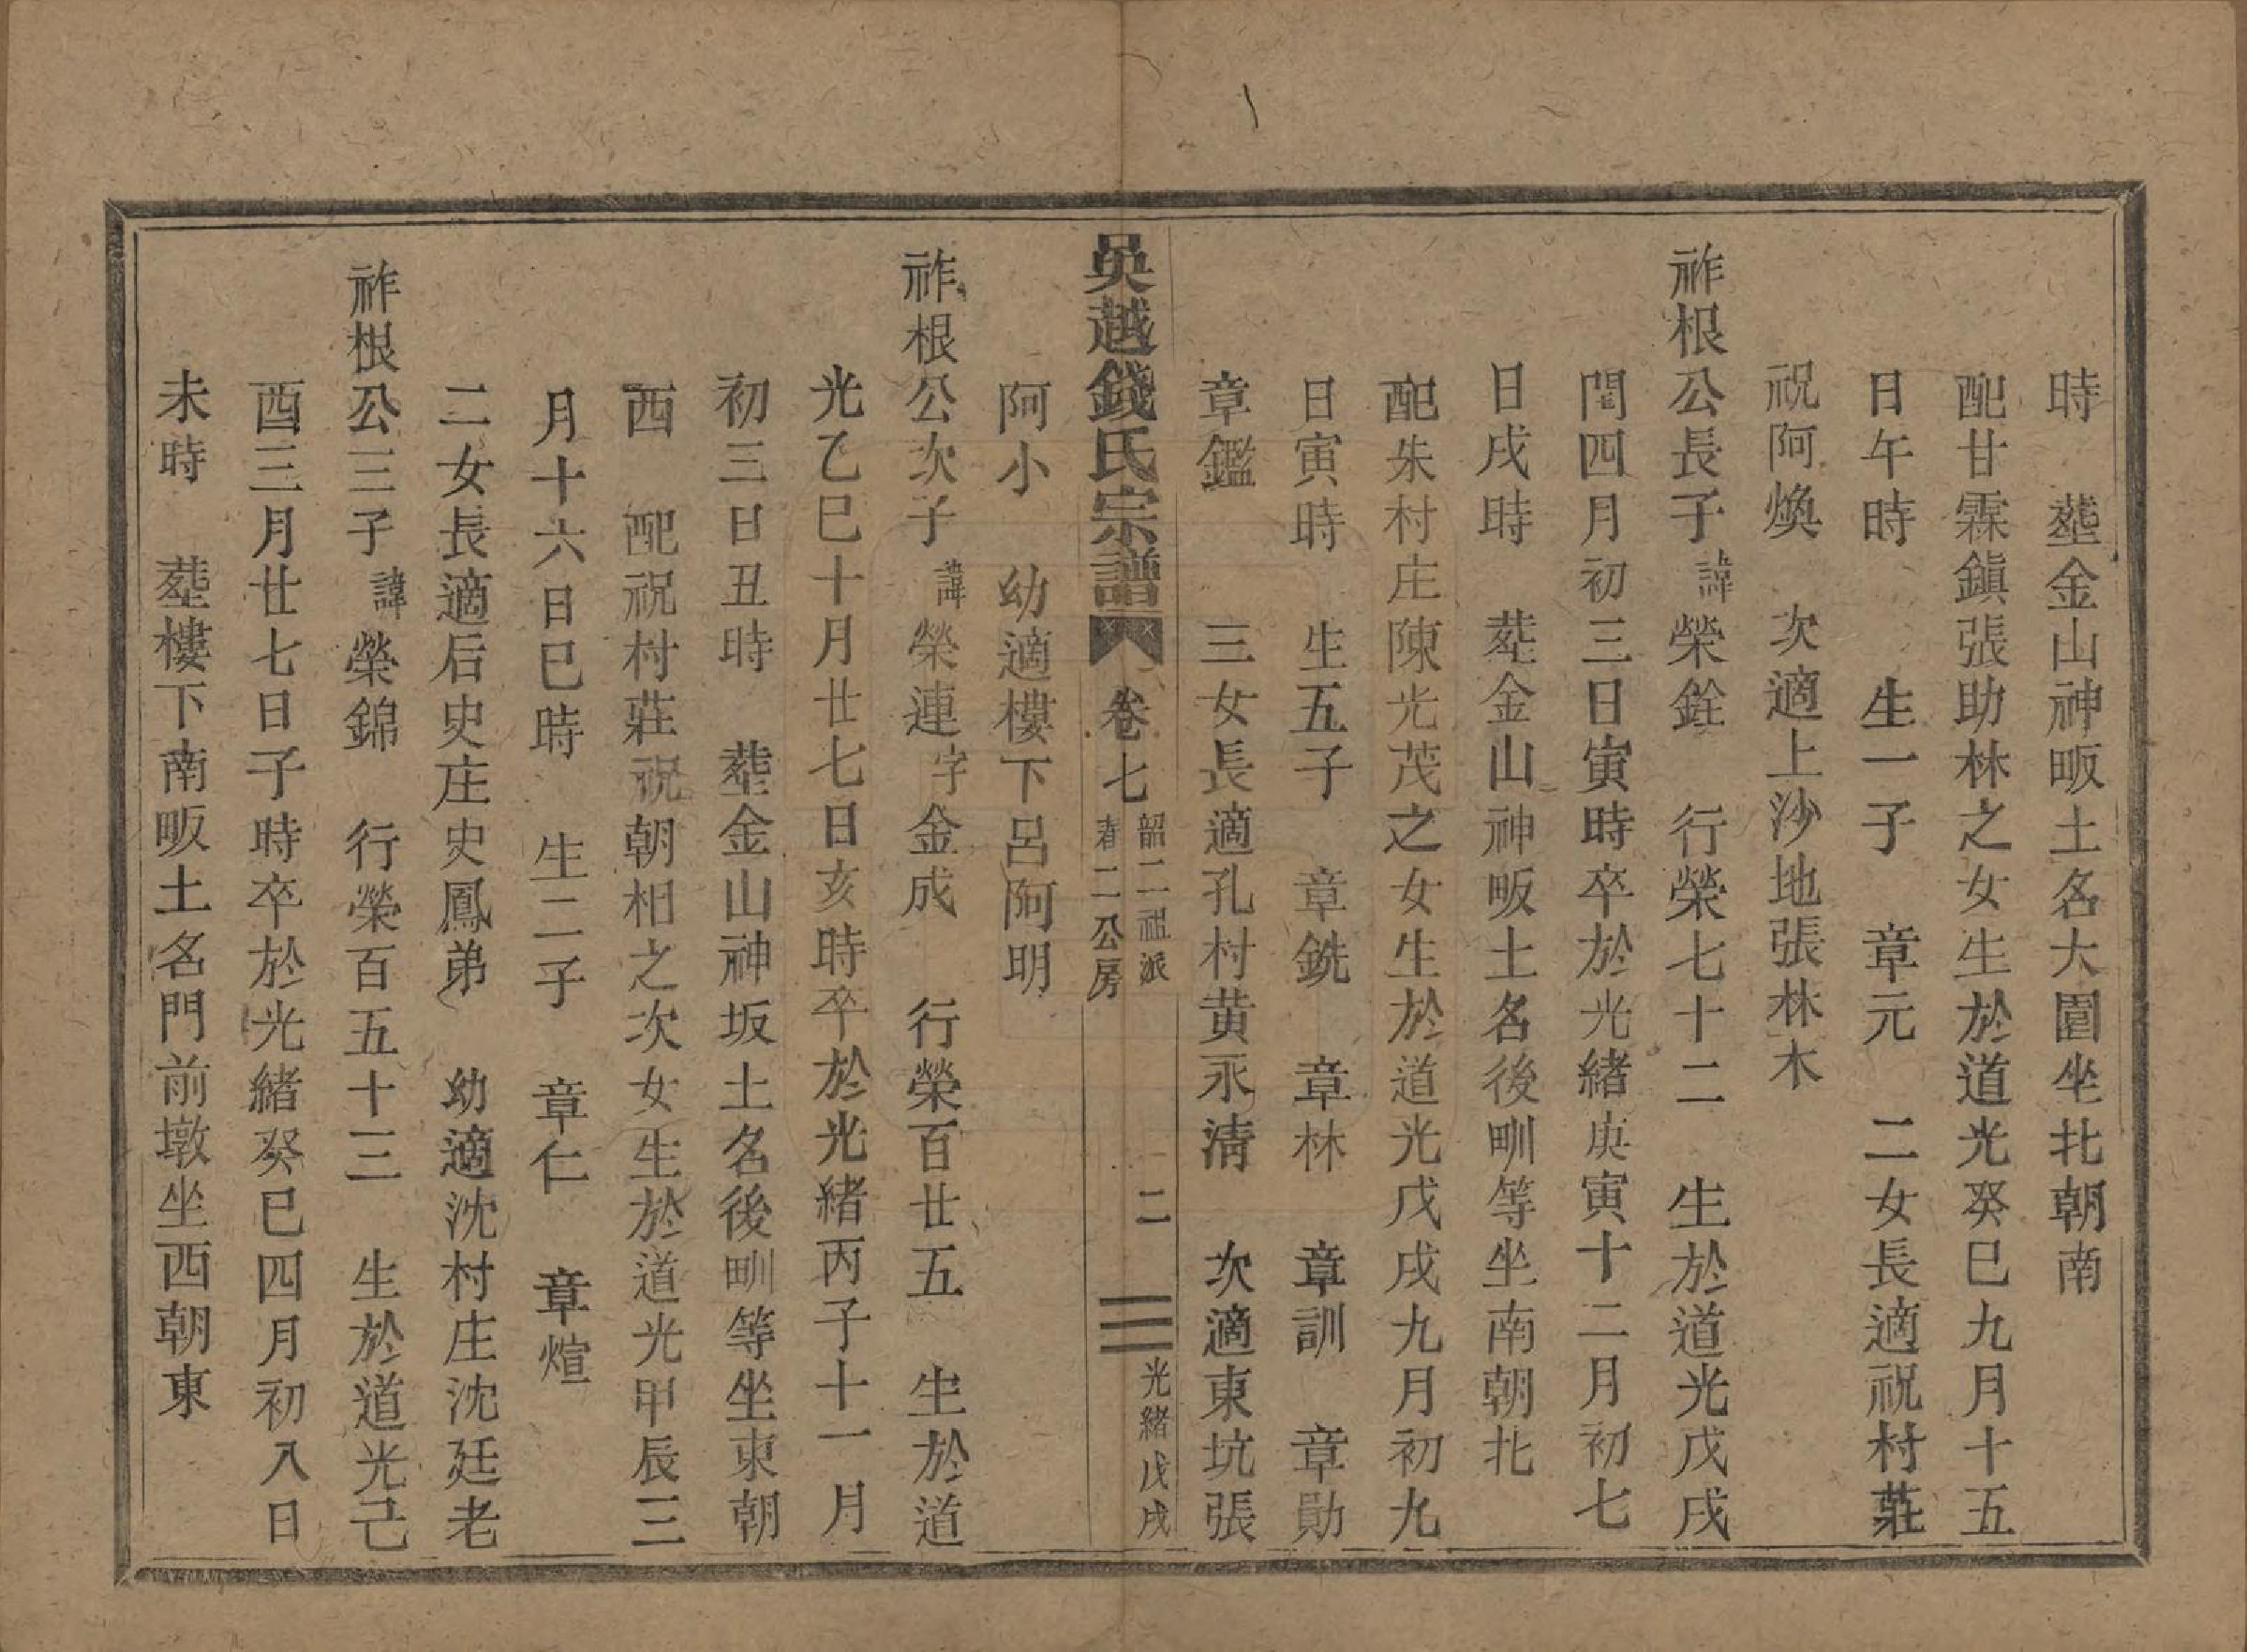 時　塟金山神畈土名大園坐北朝南
配甘霖鎮張助林之女生於道光癸巳九月十五
日午時　生一子　章元　二女長適祝村莊
祝阿煥　次適上沙地張林木
祚根公長子諱榮銓　行榮七十二　生於道光戊戌
閏四月初三日寅時卒於光緒庚寅十二月初七
日戌時　塟金山神畈土名後甽等坐南朝北
配朱村庄陳光茂之女生於道光戊戌九月初九
日寅時　生五子　章銑　章林　章訓　章勛
章鑑　三女長適孔村黃永淸　次適東坑張
吳越錢氏宗譜　卷七　韶二祖派　春二公房　二　光緒戊戌
阿小　幼適樓下呂阿明
祚根公次子諱榮連字金成　行榮百廿五　生於道
光乙巳十月廿七日亥時卒於光緒丙子十一月
初三日丑時　塟金山神坂土名後甽等坐東朝
西　配祝村莊祝朝相之次女生於道光甲辰三
月十六日巳時　生二子　章仁　章煊
二女長適后史庄史鳳弟　幼適沈村庄沈廷老
祚根公三子諱榮錦　行榮百五十三　生於道光己
酉三月廿七日子時卒於光緒癸巳四月初八日
未時　塟樓下南畈土名門前墩坐西朝東